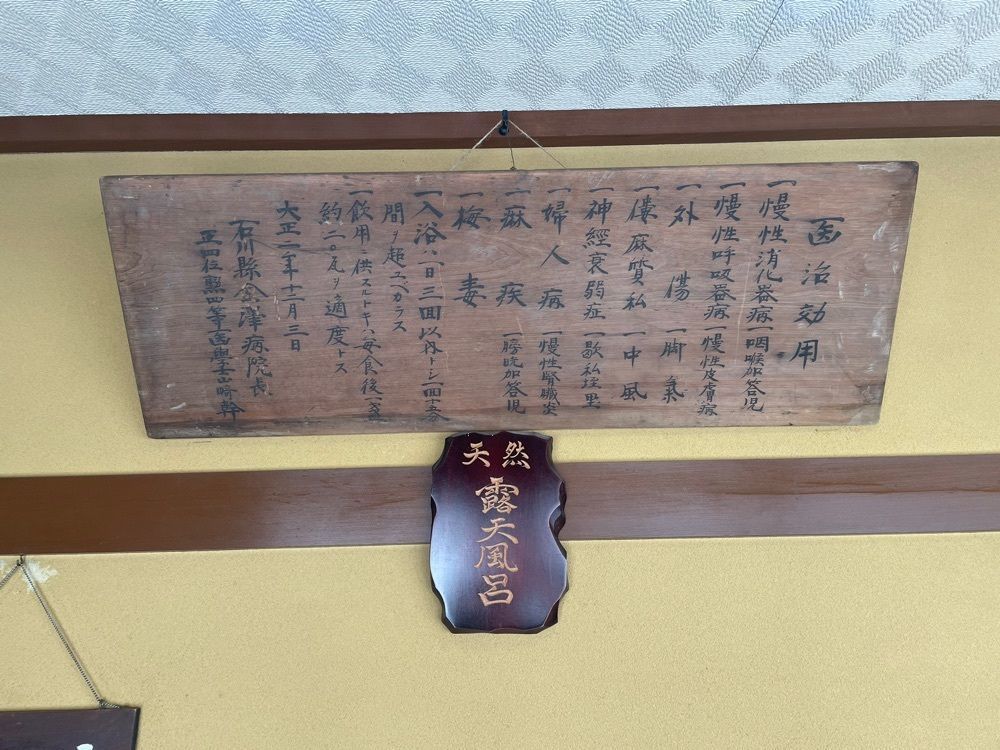 医治効用
一慢性消化器病 一咽喉加答児
一慢性呼吸器病 一慢性皮膚病
一外傷 一脚氣
一僂麻質私 一中風
一神經衰弱症 一歇私垤里
一婦人病 一慢性腎臓炎
一痳疾 一膀胱加答児
一梅毒
一入浴ハ一日三回以内トシ一回十五分
間ヲ超ユベカラス
一飲用ニ供スルトキハ毎食後一合
約二〇瓦ヲ適度トス
大正二年十二月三日
石川縣金澤病院長
正四位勲四等医學士山崎幹
天然
露天風呂